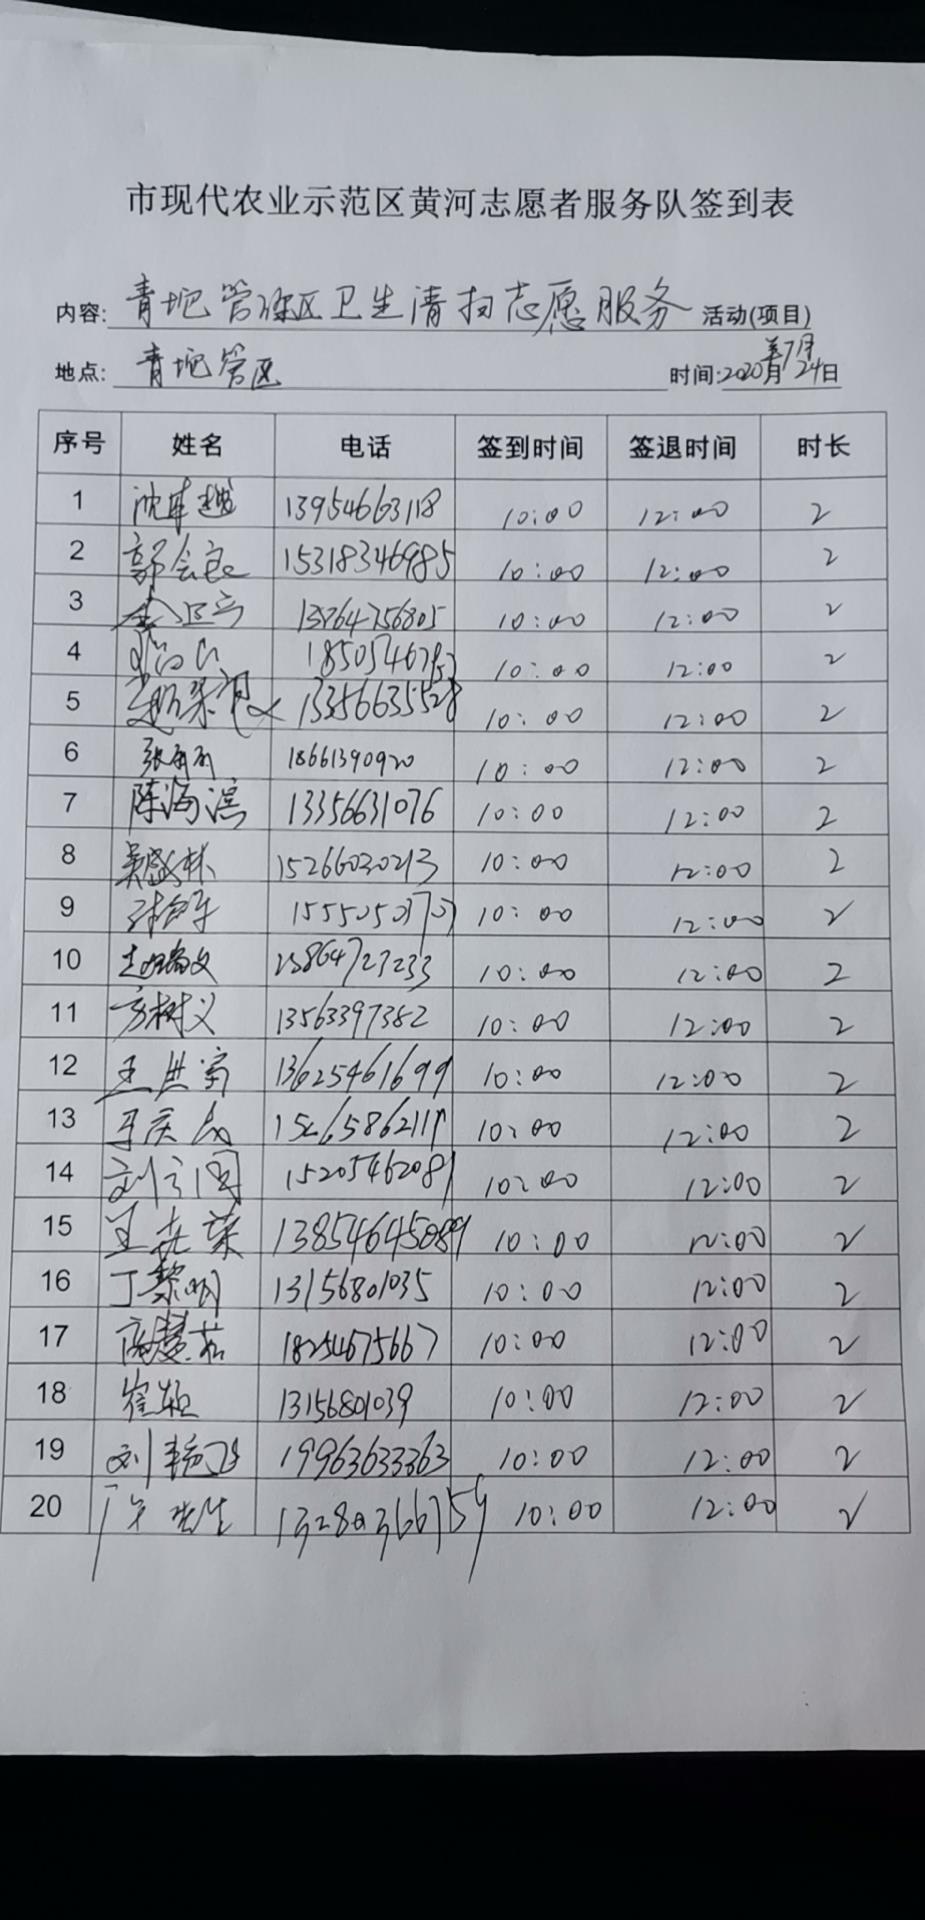 市现代农业示范区黄河志愿者服务队签到表
内容: 青坨管理区卫生清扫志愿服务 活动(项目)
地点: 青坨管区 时间:2020年7月24日
序号 姓名 电话 签到时间 签退时间 时长
1 13954663118 10:00 12:00 2
2 郭会良 15318346985 10:00 12:00 2
3 10:00 12:00 2
4 10:00 12:00 2
5 13356635528 10:00 12:00 2
6 18661390920 10:00 12:00 2
7 陈海滨 13356631076 10:00 12:00 2
8 吴盛林 15266030213 10:00 12:00 2
9 10:00 12:00 2
10 赵瑞义 15864723233 10:00 12:00 2
11 方树义 13563397382 10:00 12:00 2
12 王洪富 13625461699 10:00 12:00 2
13 10:00 12:00 2
14 刘立国 15205462089 10:00 12:00 2
15 13854645089 10:00 12:00 2
16 丁黎明 13156801035 10:00 12:00 2
17 18254675667 10:00 12:00 2
18 崔桓 13156801039 10:00 12:00 2
19 刘艳飞 19963633363 10:00 12:00 2
20 10:00 12:00 2